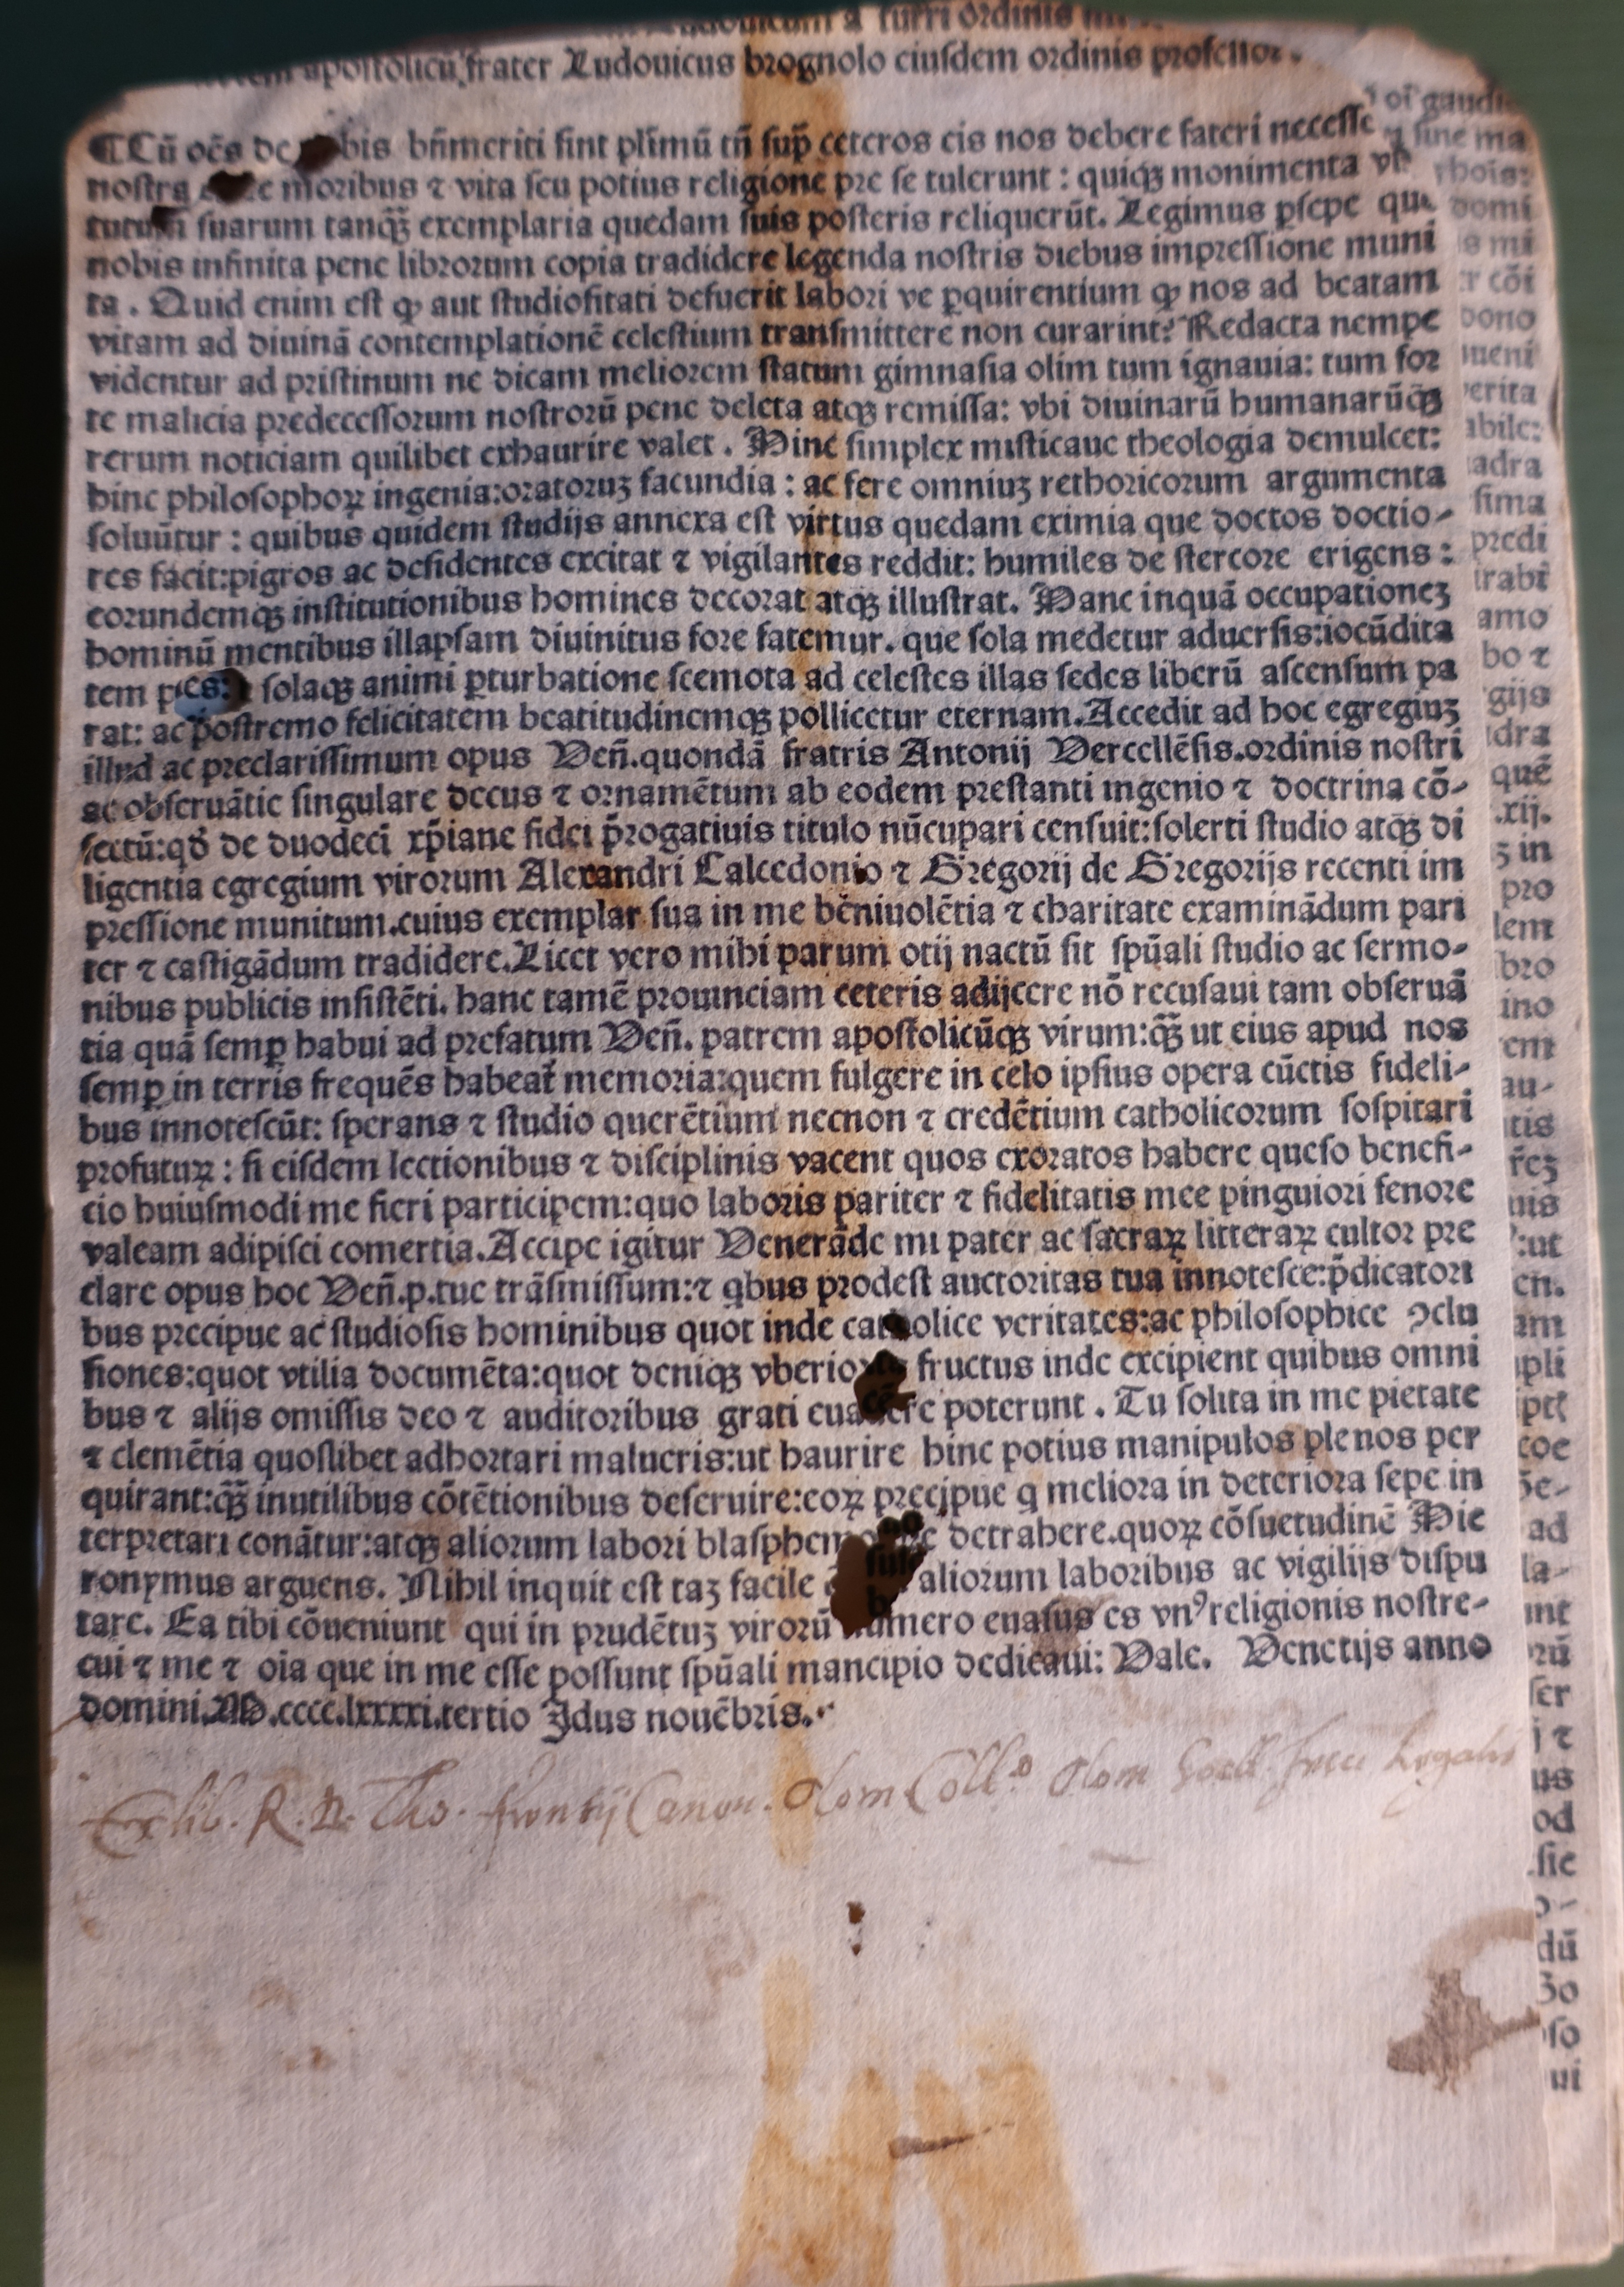 a Turri ordinis
apostolicū frater Ludouicus brognolo eiusdem ordinis professor.
¶Cū oēs de bis bn̄meriti sint plīmū tn̄ sup̄ ceteros eis nos debere fateri necesse
nostra moribus ⁊ vita seu potius religione pre se tulerunt : quiqꝫ monimenta
suarum tanqꝫ̄ exemplaria quedam suis posteris reliquerūt. Legimus ꝑsepe
nobis infinita pene librorum copia tradidere legenda nostris diebus impressione muni
ta . Quid enim est ꝙ aut studiositati defuerit labori ve ꝑquirentium ꝙ nos ad beatam
vitam ad diuinā contemplationē celestium transmittere non curarint? Redacta nempe
videntur ad pristinum ne dicam meliorem statum gimnasia olim tum ignauia: tum for
te malicia predecessorum nostrorū pene deleta atqꝫ remissa: vbi diuinarū humanarūqꝫ
rerum noticiam quilibet exhaurire valet . Hinc simplex misticaue theologia demulcet:
hinc philosophoꝝ ingenia:oratoruꝫ facundia : ac fere omniuꝫ rethoricorum argumenta
soluūtur : quibus quidem studijs annexa est virtus quedam eximia que doctos doctio-
res facit:pigros ac desidentes excitat ⁊ vigilantes reddit: humiles de stercore erigens :
eorundemqꝫ institutionibus homines decorat atqꝫ illustrat. Hanc inquā occupationeꝫ
hominū mentibus illapsam diuinitus fore fatemur. que sola medetur aduersis:iocūdita
tem solaqꝫ animi ꝑturbatione semota ad celestes illas sedes liberū ascensum pa
rat: ac postremo felicitatem beatitudinemqꝫ pollicetur eternam.Accedit ad hoc egregiuꝫ
illud ac preclarissimum opus Ven̄.quondā fratris Antonij Vercellēsis.ordinis nostri
ac obseruātie singulare decus ⁊ ornamētum ab eodem prestanti ingenio ⁊ doctrina cō-
fectū:qđ de duodeci xp̄iane fidei p̄rogatiuis titulo nūcupari censuit:solerti studio atqꝫ di
ligentia egregium virorum Alexandri Calcedonio ⁊ Gregorij de Gregorijs recenti im
pressione munitum.cuius exemplar sua in me bēniuolētia ⁊ charitate examinādum pari
ter ⁊ castigādum tradidere.Licet vero mihi parum otij nactū sit spūali studio ac sermo-
nibus publicis insistēti. hanc tamē prouinciam ceteris adijcere nō recusaui tam obseruā
tia quā semꝑ habui ad prefatum Ven̄. patrem apostolicūqꝫ virum:qꝫ̄ ut eius apud nos
semꝑ in terris frequēs habeat̄ memoria:quem fulgere in celo ipsius opera cūctis fideli-
bus innotescūt: sperans ⁊ studio querētium necnon ⁊ credētium catholicorum sospitari
profuturꝝ : si eisdem lectionibus ⁊ disciplinis vacent quos exoratos habere queso benefi-
cio huiusmodi me fieri participem:quo laboris pariter ⁊ fidelitatis mee pinguiori fenore
valeam adipisci comertia.Accipe igitur Venerāde mi pater ac sacraꝝ litteraꝝ cultor pre
clare opus hoc Ven̄.p.tue trāsmissum:⁊ qbus prodest auctoritas tua innotesce:p̄dicatori
bus precipue ac studiosis hominibus quot inde catholice veritates:ac philosophice ꝯclu
siones:quot vtilia documēta:quot deniqꝫ vberiores fructus inde excipient quibus omni
bus ⁊ alijs omissis deo ⁊ auditoribus grati euadere poterunt . Tu solita in me pietate
⁊ clemētia quoslibet adhortari malueris:ut haurire hinc potius manipulos plenos per
quirant:qꝫ̄ inutilibus cōtētionibus deseruire:eoꝝ precipue q meliora in deteriora sepe in
terpretari conātur:atqꝫ aliorum labori detrahere.quoꝝ cōsuetudinē Hie
ronymus arguens. Nihil inquit est taꝫ facile aliorum laboribus ac vigilijs dispu
tare. Ea tibi cōueniunt qui in prudētuꝫ virorū numero euasus es vnꝰ religionis nostre-
cui ⁊ me ⁊ oīa que in me esse possunt spūali mancipio dedicaui: Vale. Venetijs anno
domini.M.cccc.lxxxxi.tertio Idus nouēbris.
Ex lib. R. D. Tho. Canon. Olom